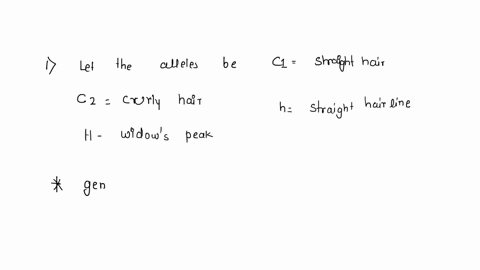 1) Let the alleles be C1 = straight hair
C2 = curly hair h = straight hair line
H - widow's peak
* gen